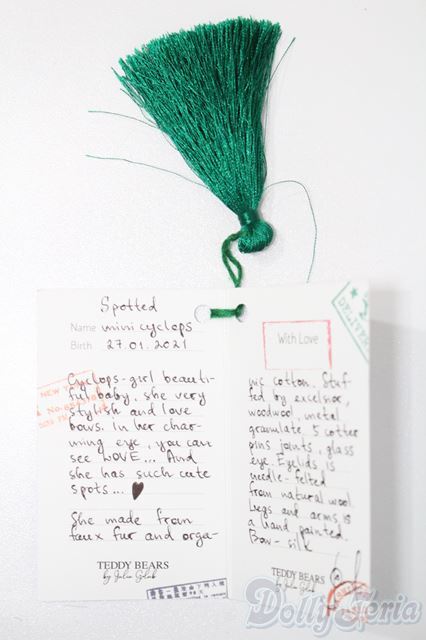 Spotted
Name mini cyclops
Birth 27.01.2021
Cyclops-girl beauti-
ful baby, she very
stylish and love
bows. In her char-
ming eye, you can
see LOVE... And
she has such cute
spots... 
She made from
faux fur and orga-
TEDDY BEARS
by Julia Golub
With Love
DELIVER
nic cotton. Stuf-
fed by excelsior,
woodwool, metal
granulate. 5 cotter
pins joints, glass
eye. Eyelids is
needle-felted
from natural wool.
Legs and arms is
a hand painted.
Bow - silk
TEDDY BEARS
by Julia Golub
NEW YORK
DollyTeria